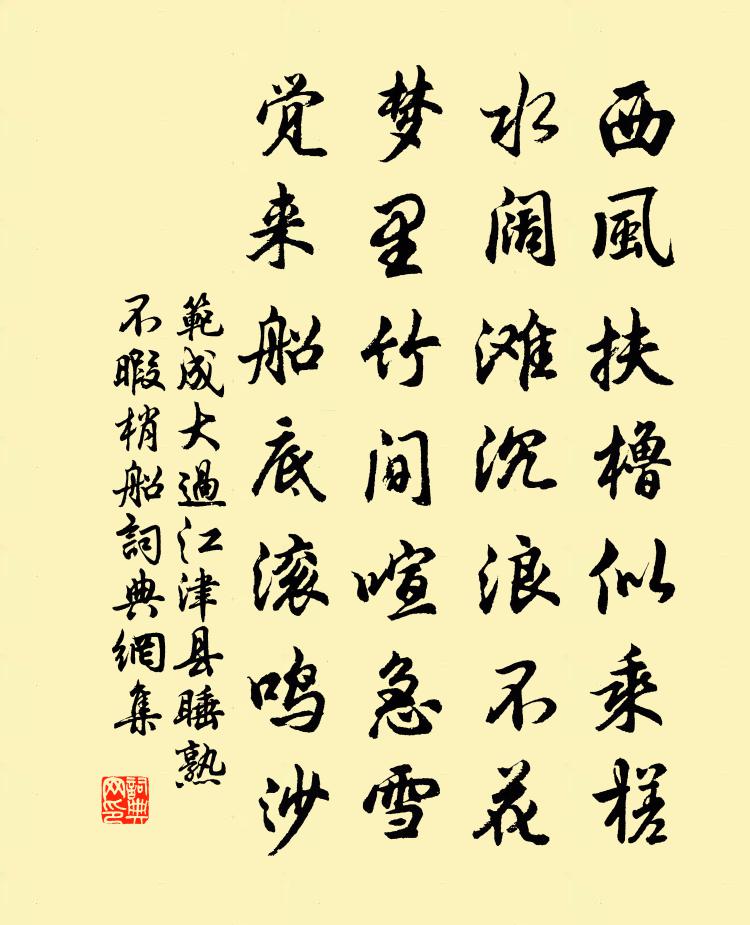 西風扶櫓似乘槎
水阔滩沉浪不花
梦里竹间喧急雪
觉来船底滚鸣沙
範成大過江津县睡熟
不暇梢船詞典網集
詞典网印